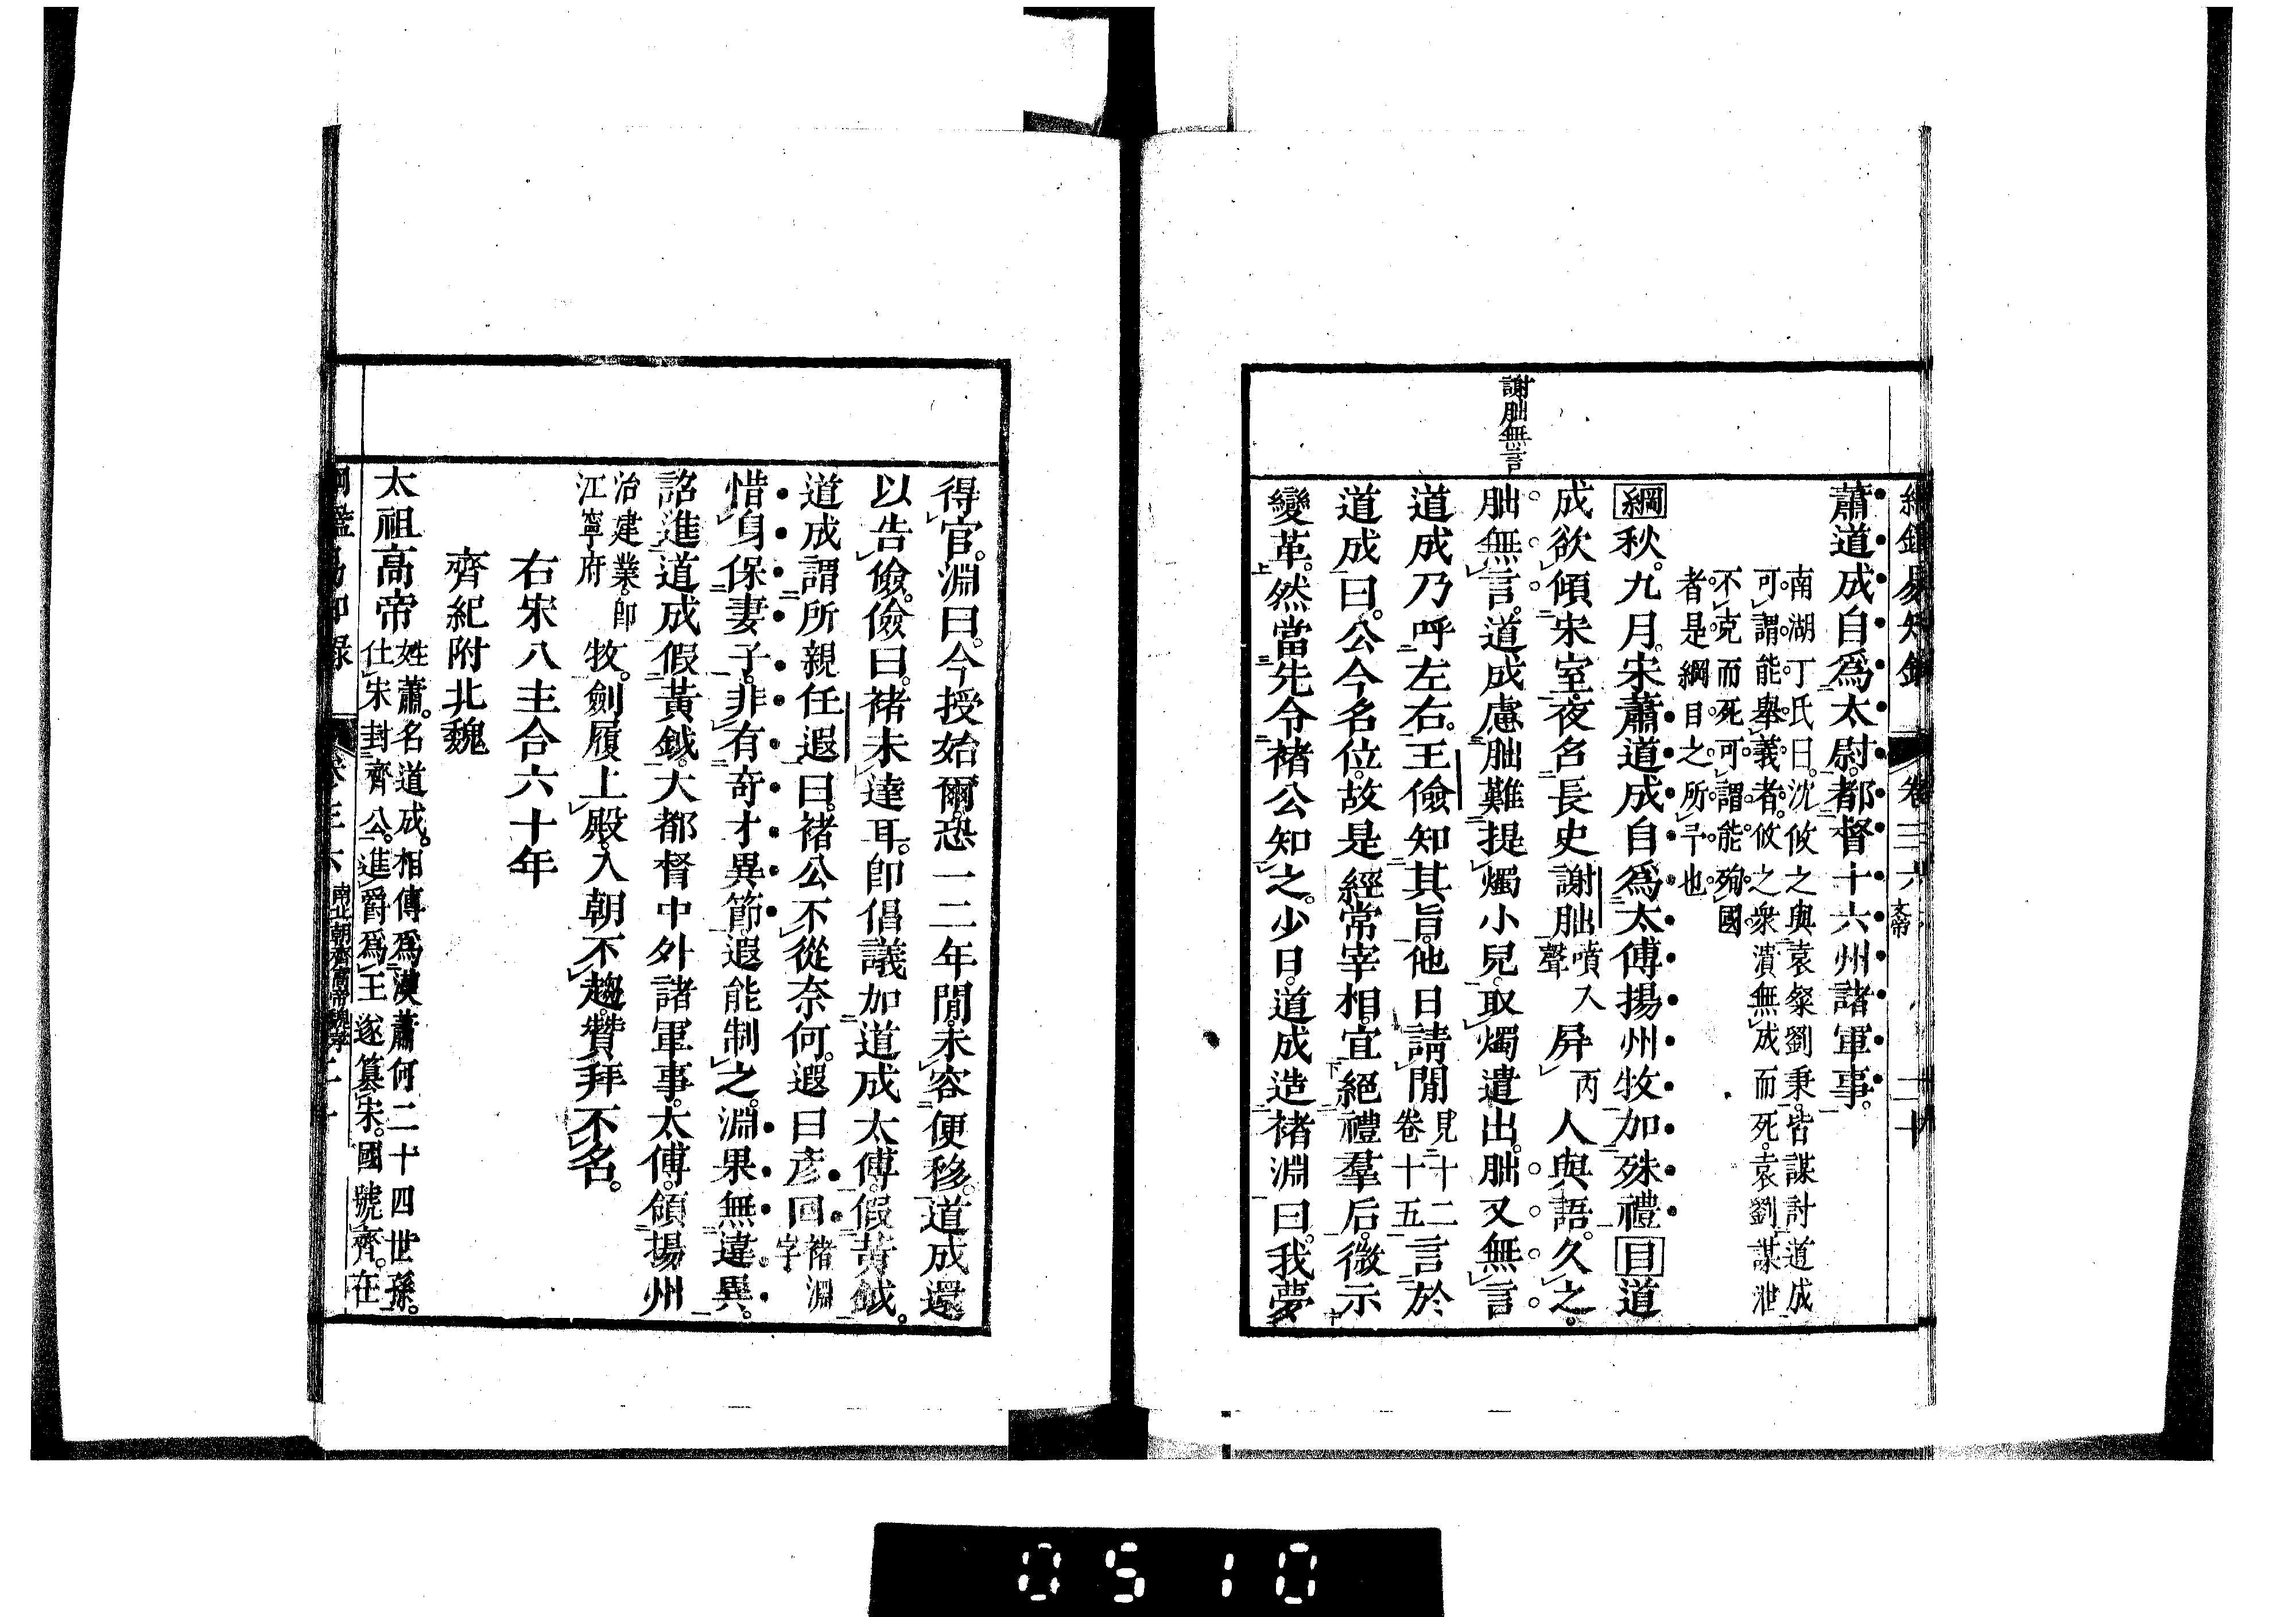 綱鑑易知錄 卷三六 文帝 二十
蕭道成自爲太尉。都督十六州諸軍事。
南湖丁氏曰。沈攸之與袁粲劉秉。皆謀討道成
可謂能舉義者。攸之衆潰無成而死。袁劉謀泄
不克而死可謂能殉國
者。是綱目之所予也
綱秋。九月。宋蕭道成自爲太傅揚州牧加殊禮目道
成欲傾宋室。夜召長史謝朏噴入聲屏丙人與語。久之。
謝朏無言
朏無言。道成慮朏難提燭小兒。取燭遣出。朏又無言
道成乃呼左右。王儉知其旨。他日請閒見十二卷十五言於
道成曰。公今名位。故是經常宰相。宜絕禮羣后。微示
變革。然當先令褚公知之。少日。道成造褚淵曰。我夢
得官。淵曰。今授始爾。恐一二年閒。未容便移。道成還
以告儉。儉曰。褚未達耳。卽倡議加道成太傅。假黃鉞。
道成謂所親任遐曰。褚公不從奈何。遐曰彥回褚淵字
惜身保妻子。非有奇才異節。遐能制之。淵果無違異。
詔進道成假黃鉞。大都督中外諸軍事。太傅。領揚州
治建業。卽江寧府牧。劍履上殿。入朝不趨。贊拜不名。
右宋八主合六十年
齊紀附北魏
太祖高帝姓蕭。名道成。相傳爲漢蕭何二十四世孫。
仕宋封齊公。進爵爲王遂篡宋。國號齊。在
綱鑑易知錄 卷三六 南北朝齊高帝魏孝 二十
0510